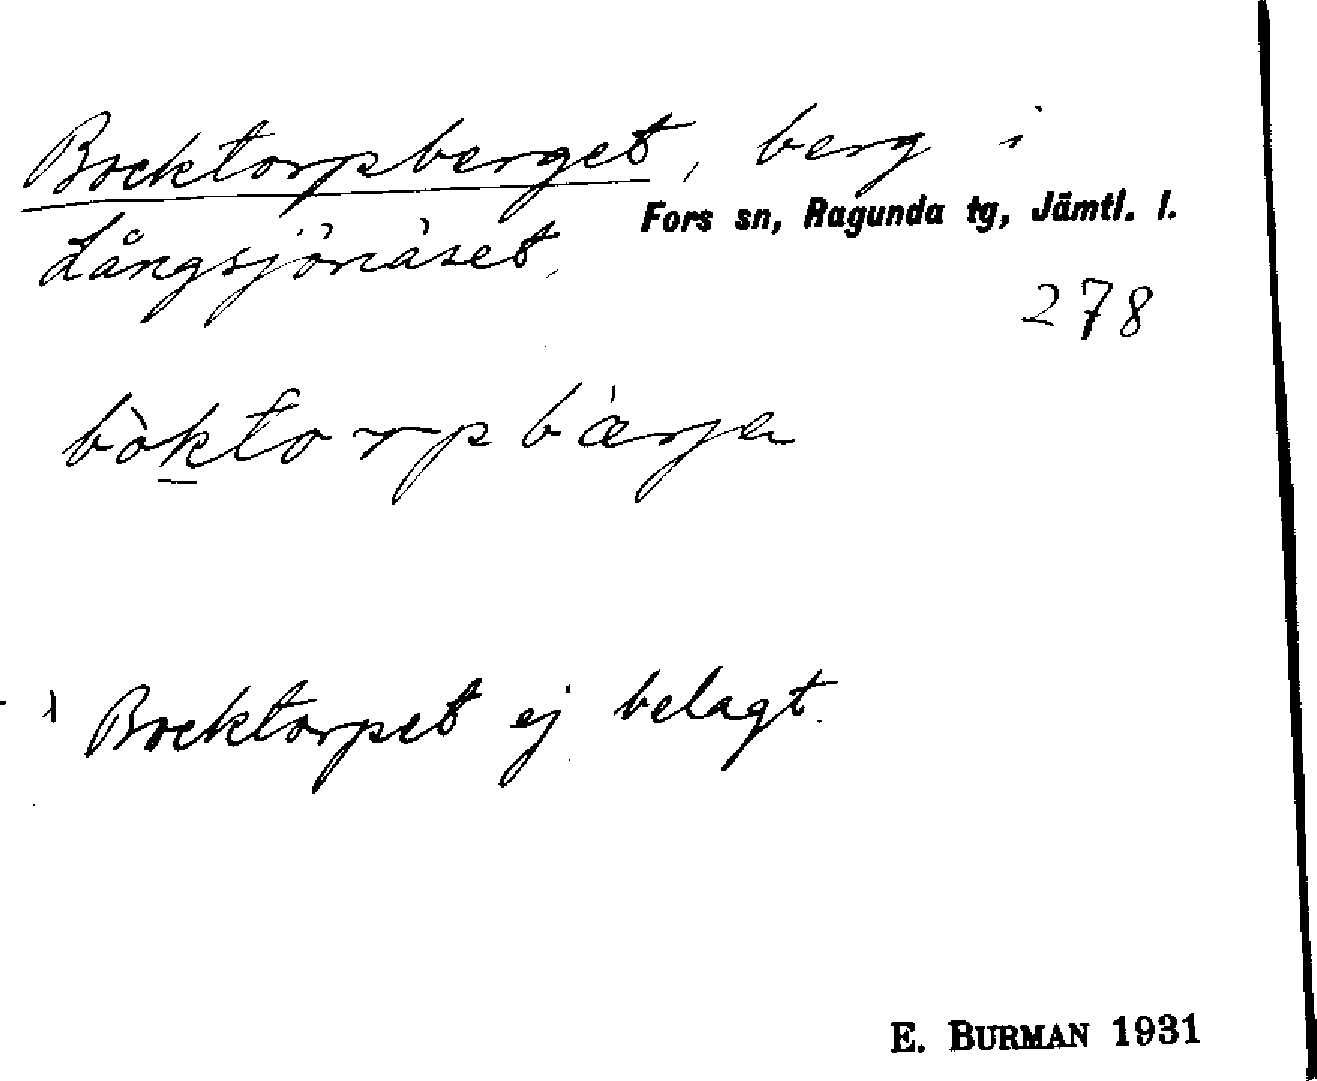 Bocktorpberget, berg i
Fors sn, Ragunda tg, Jämtl. l.
Långsjönäset.
278
bòktorpbárja
Bocktorpet ej belagt.
E. BURMAN 1931